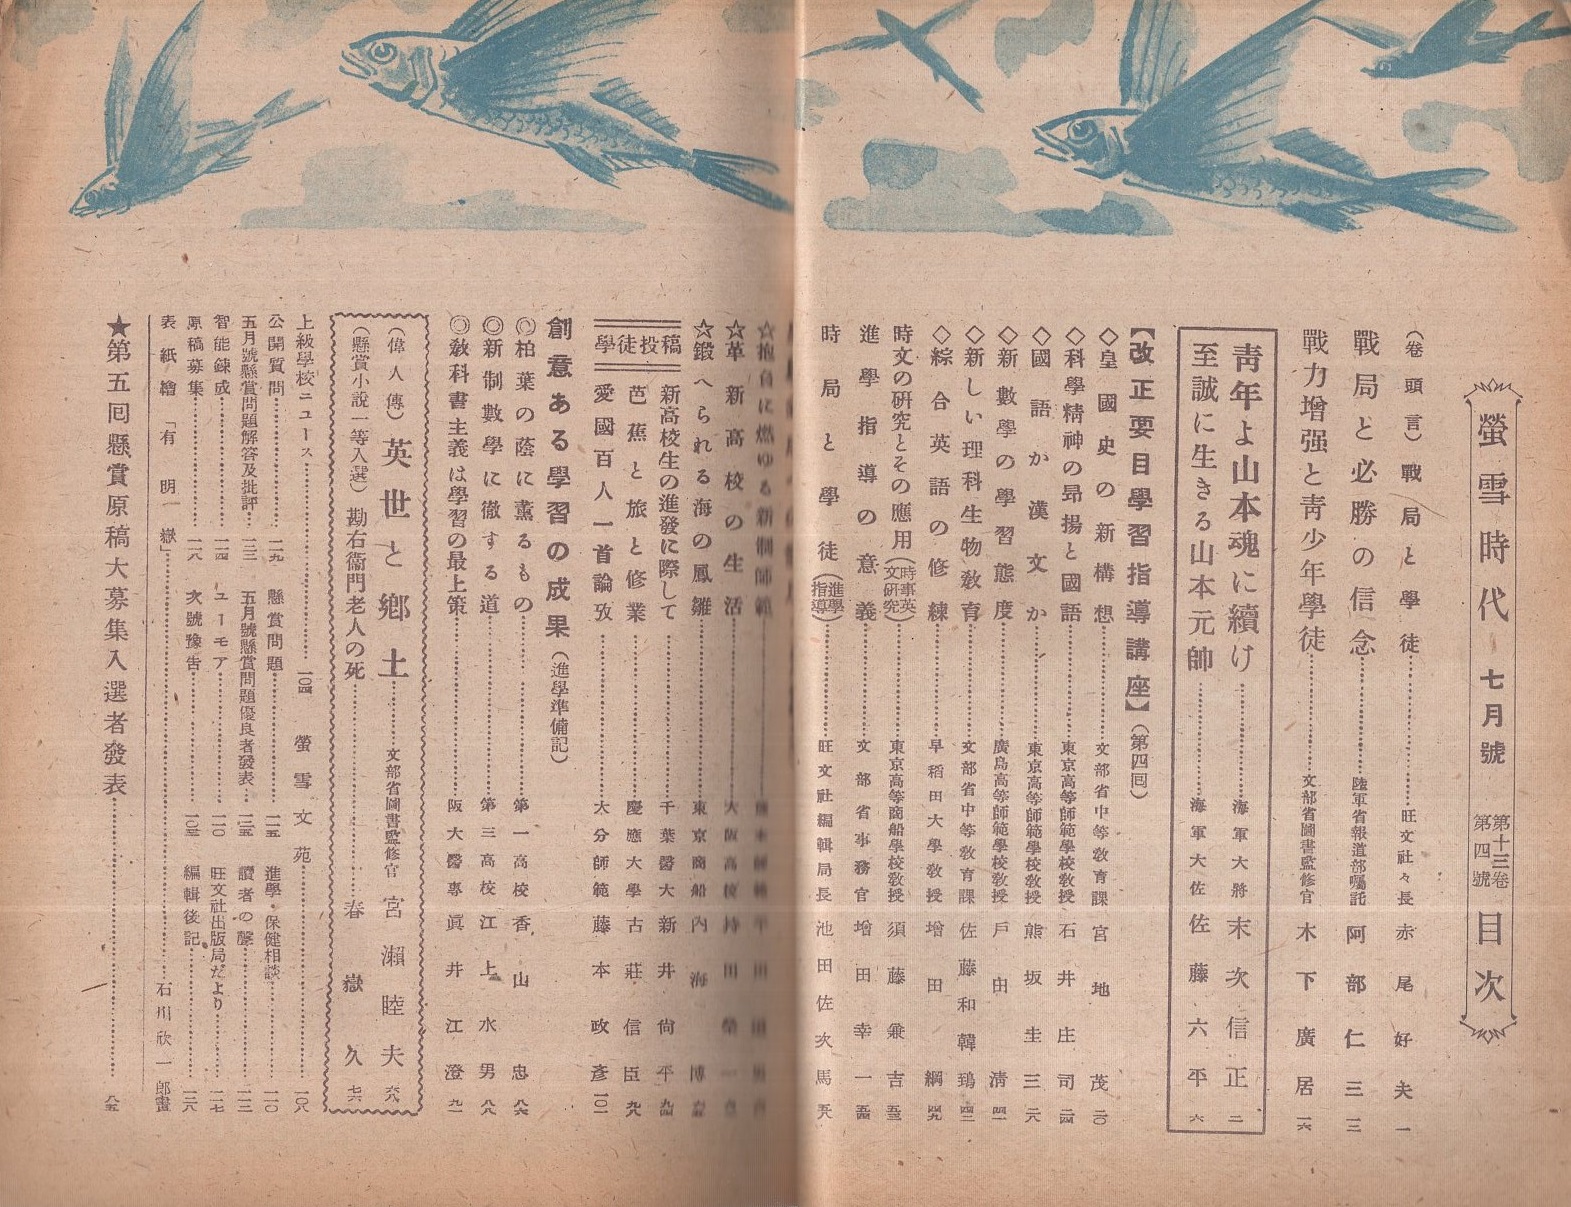 螢雪時代 七月號 第十三卷 第四號 目次
（卷頭言）戰局と學徒……旺文社々長 赤尾好夫 一
戰局と必勝の信念……陸軍省報道部囑託 阿部仁三 三
戰力增强と靑少年學徒……文部省圖書監修官 木下廣居 一六
靑年よ山本魂に續け……海軍大將 末次信正 二
至誠に生きる山本元帥……海軍大佐 佐藤六平 六
【改正要目學習指導講座】（第四囘）
◇皇國史の新構想……文部省中等敎育課 宮地茂 二〇
◇科學精神の昻揚と國語……東京高等師範學校敎授 石井庄司 二四
◇國語か漢文か……東京高等師範學校敎授 熊坂圭三 二八
◇新數學の學習態度……廣島高等師範學校敎授 戶田淸
◇新しい理科生物敎育……文部省中等敎育課 佐藤和韓鵄
◇綜合英語の修練……早稻田大學敎授 增田綱
時文の硏究とその應用（時事英文硏究）……東京高等商船學校敎授 須藤兼吉
進學指導の意義……文部省事務官 增田幸一
時局と學徒（進學指導）……旺文社編輯局長 池田佐次馬
☆抱負に燃ゆる新制師範……
☆革新高校の生活……大阪高校 持田榮一
☆鍛へられる海の鳳雛……東京商船 內海博
學徒投稿
新高校生の進發に際して……千葉醫大 新井尙平
芭蕉と旅と修業……慶應大學 古莊信臣 九八
愛國百人一首論攷……大分師範 藤本政彥 一〇一
創意ある學習の成果（進學準備記）
◎柏葉の蔭に薰るもの……第一高校 香山忠 八六
◎新制數學に徹する道……第三高校 江上水男 八八
◎敎科書主義は學習の最上策……阪大醫專 眞井江澄 九一
（偉人傳）英世と鄕土……文部省圖書監修官 宮瀨睦夫 六八
（懸賞小說一等入選）勘右衞門老人の死……春嶽久 七六
上級學校ニュース……一〇四 螢雪文苑……一〇八
公開質問……一一九 懸賞問題……一一五 進學・保健相談……一一〇
五月號懸賞問題解答及批評……一二三 五月號懸賞問題優良者發表……一二五 讀者の聲……一一三
智能鍊成……一一四 ユーモア……一一〇 旺文社出版局だより……一一七
原稿募集……一一八 次號豫吿……一〇三 編輯後記……一二八
表紙繪「有明嶽」……石川欣一郞畫
★第五囘懸賞原稿大募集入選者發表……八五